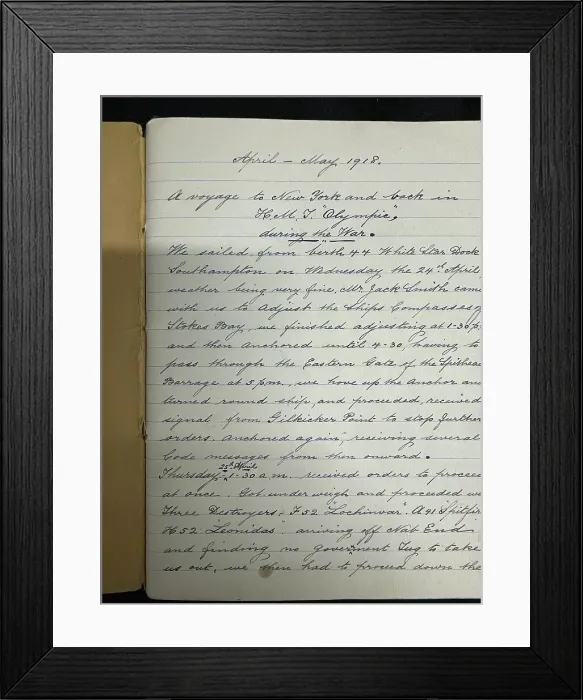 April – May 1918.
A voyage to New York and back in
H.M.T. "Olympic",
during the War.
We sailed from berth 44 White Star Dock
Southampton on Wednesday the 24th April
weather being very fine, Mr Jack Smith came
with us to Adjust the Ships Compasses
Stokes Bay, we finished adjusting at 1-30 p
and then Anchored until 4-30, having to
pass through the Eastern Gate of the Spithea
Barrage at 5 p.m., we hove up the Anchor an
turned round ship, and proceeded, received
signal from Gilkicker Point to stop further
orders. Anchored again, receiving several
Code messages from then onward.
Thursday 25th April 1-30 a.m. received orders to procee
at once. Got under weigh and proceeded w
Three Destroyers, F.52 "Lochinvar". A 91 Spitfir
H52 "Leonidas". arriving off Nab End
and finding no government Tug to take
us out, we then had to proceed down the